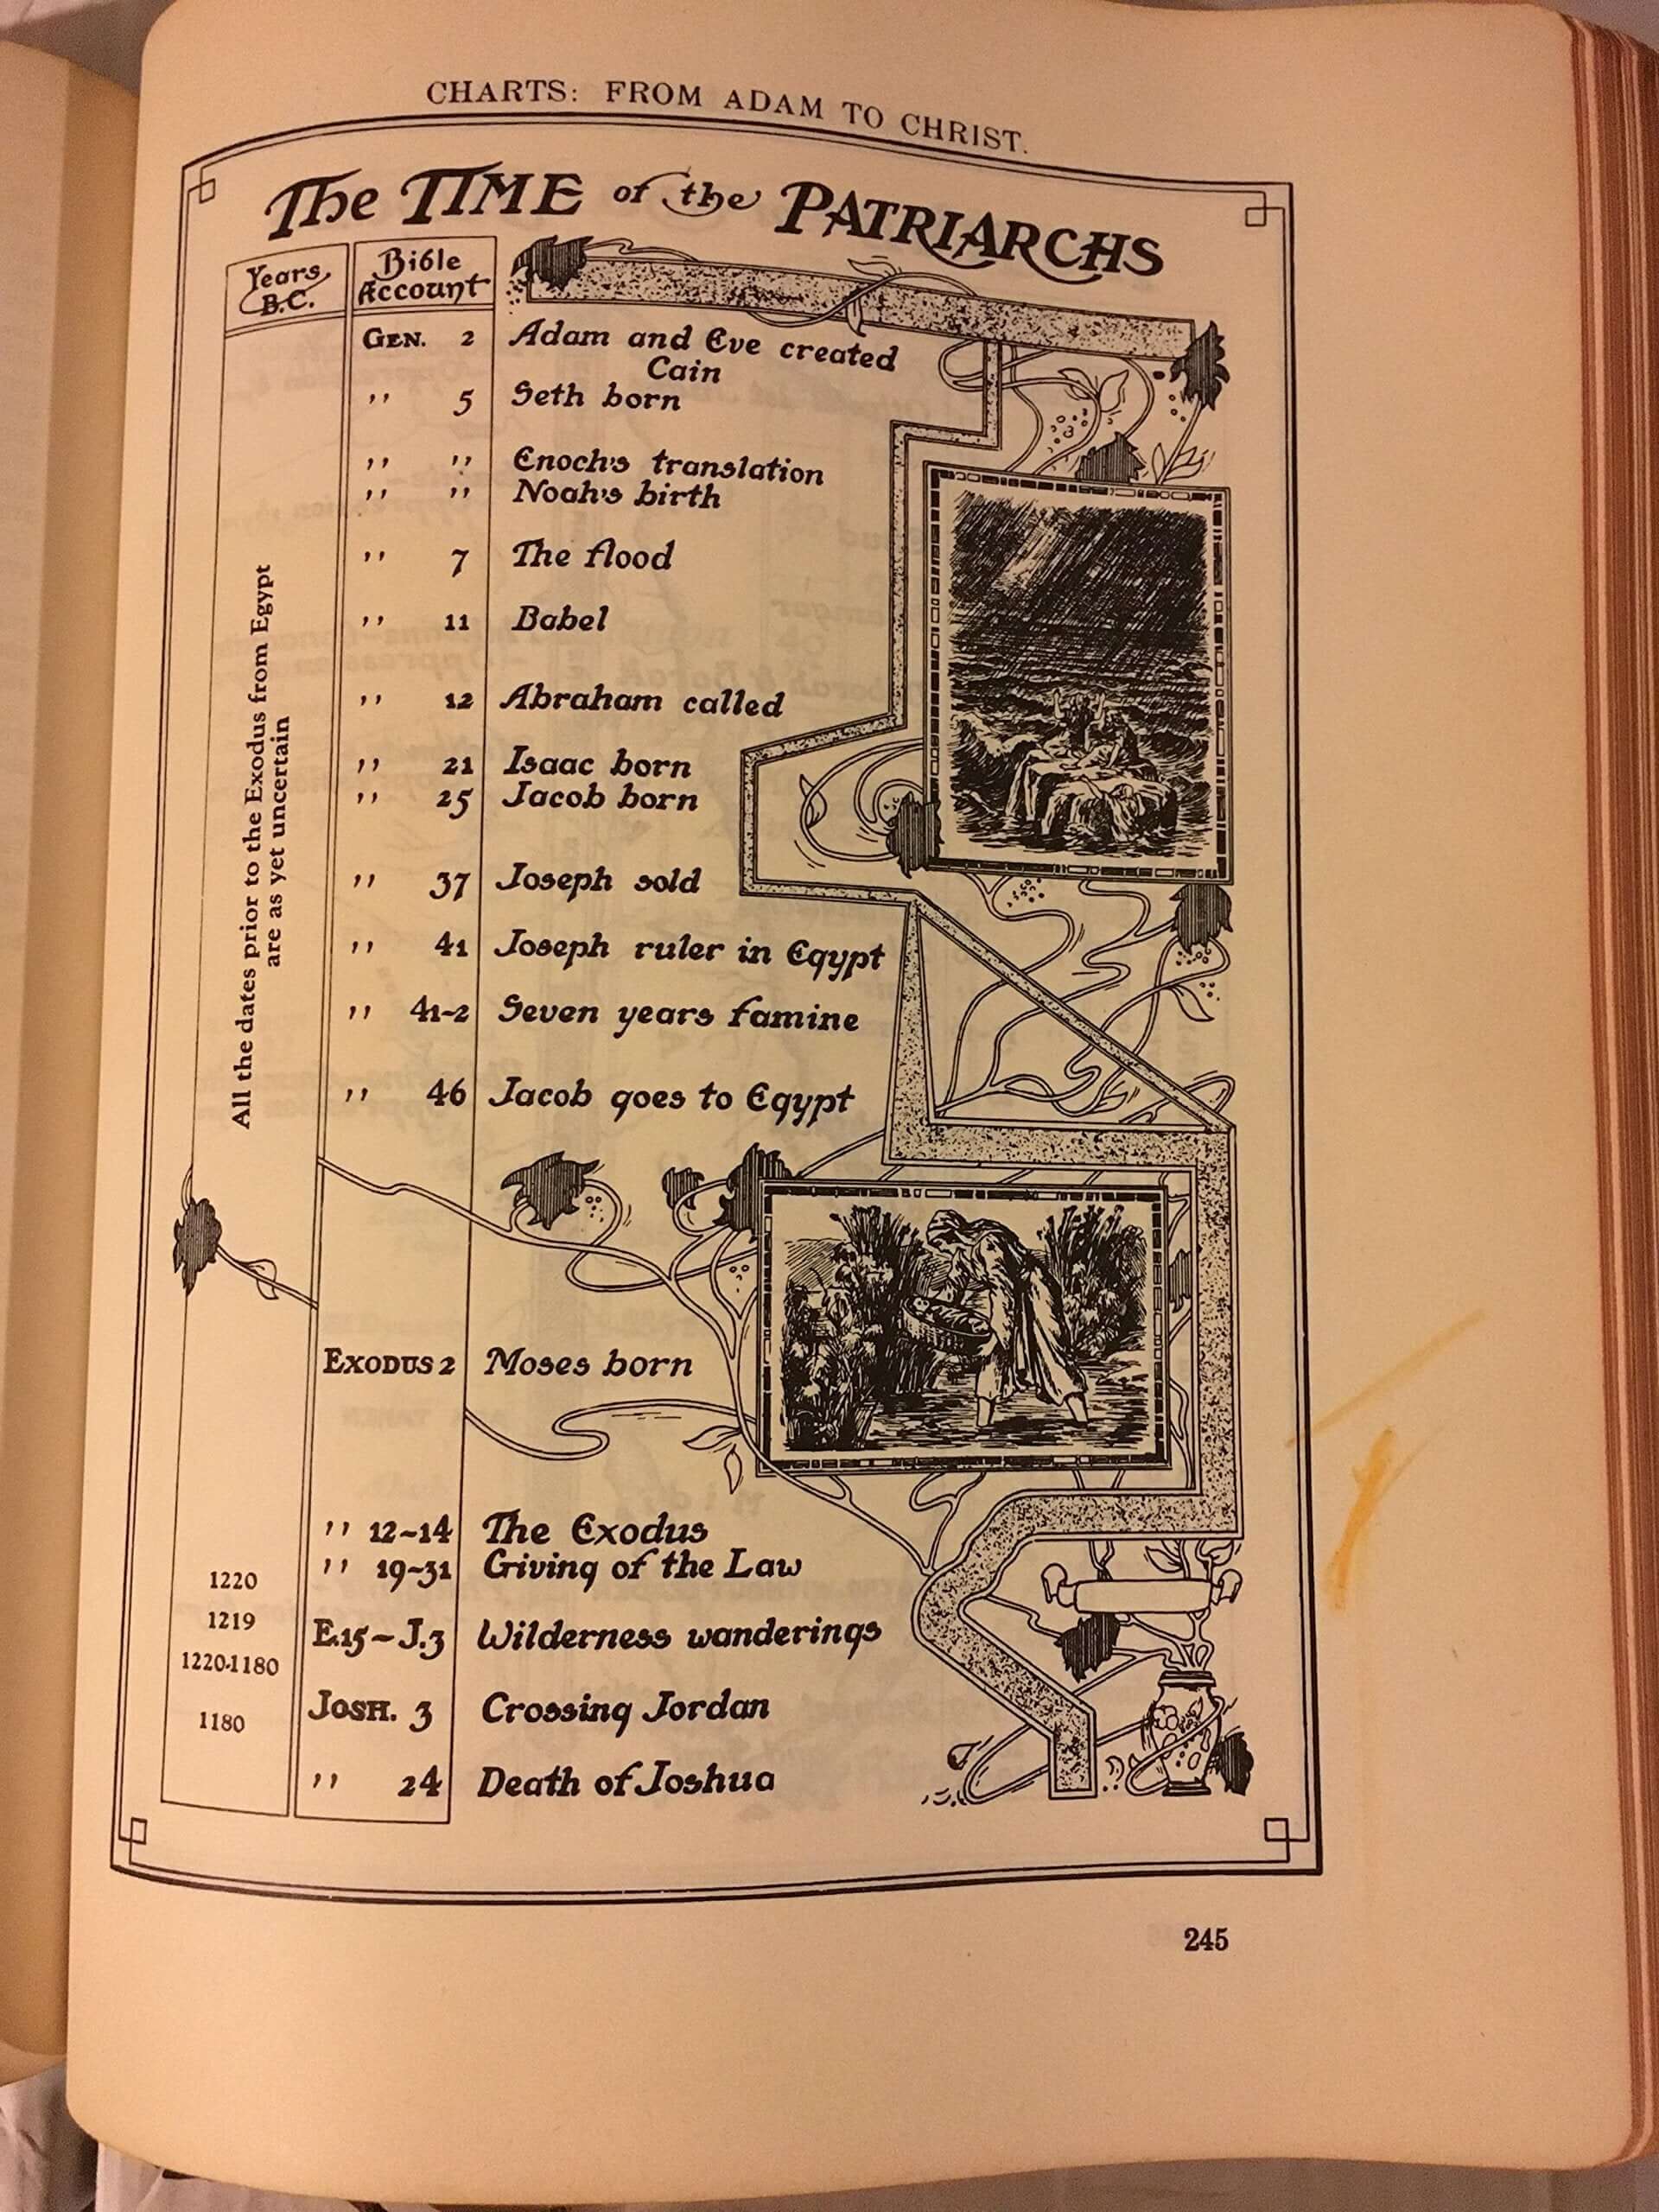 CHARTS: FROM ADAM TO CHRIST.
The TIME of the PATRIARCHS
Years B.C.
Bible Account
All the dates prior to the Exodus from Egypt
are as yet uncertain
GEN. 2 Adam and Eve created
Cain
,, 5 Seth born
,, ,, Enoch's translation
,, ,, Noah's birth
,, 7 The flood
,, 11 Babel
,, 12 Abraham called
,, 21 Isaac born
,, 25 Jacob born
,, 37 Joseph sold
,, 41 Joseph ruler in Egypt
,, 41-2 Seven years famine
,, 46 Jacob goes to Egypt
EXODUS 2 Moses born
,, 12-14 The Exodus
1220 ,, 19-31 Giving of the Law
1219
E.15-J.3 Wilderness wanderings
1220-1180
1180 JOSH. 3 Crossing Jordan
,, 24 Death of Joshua
245